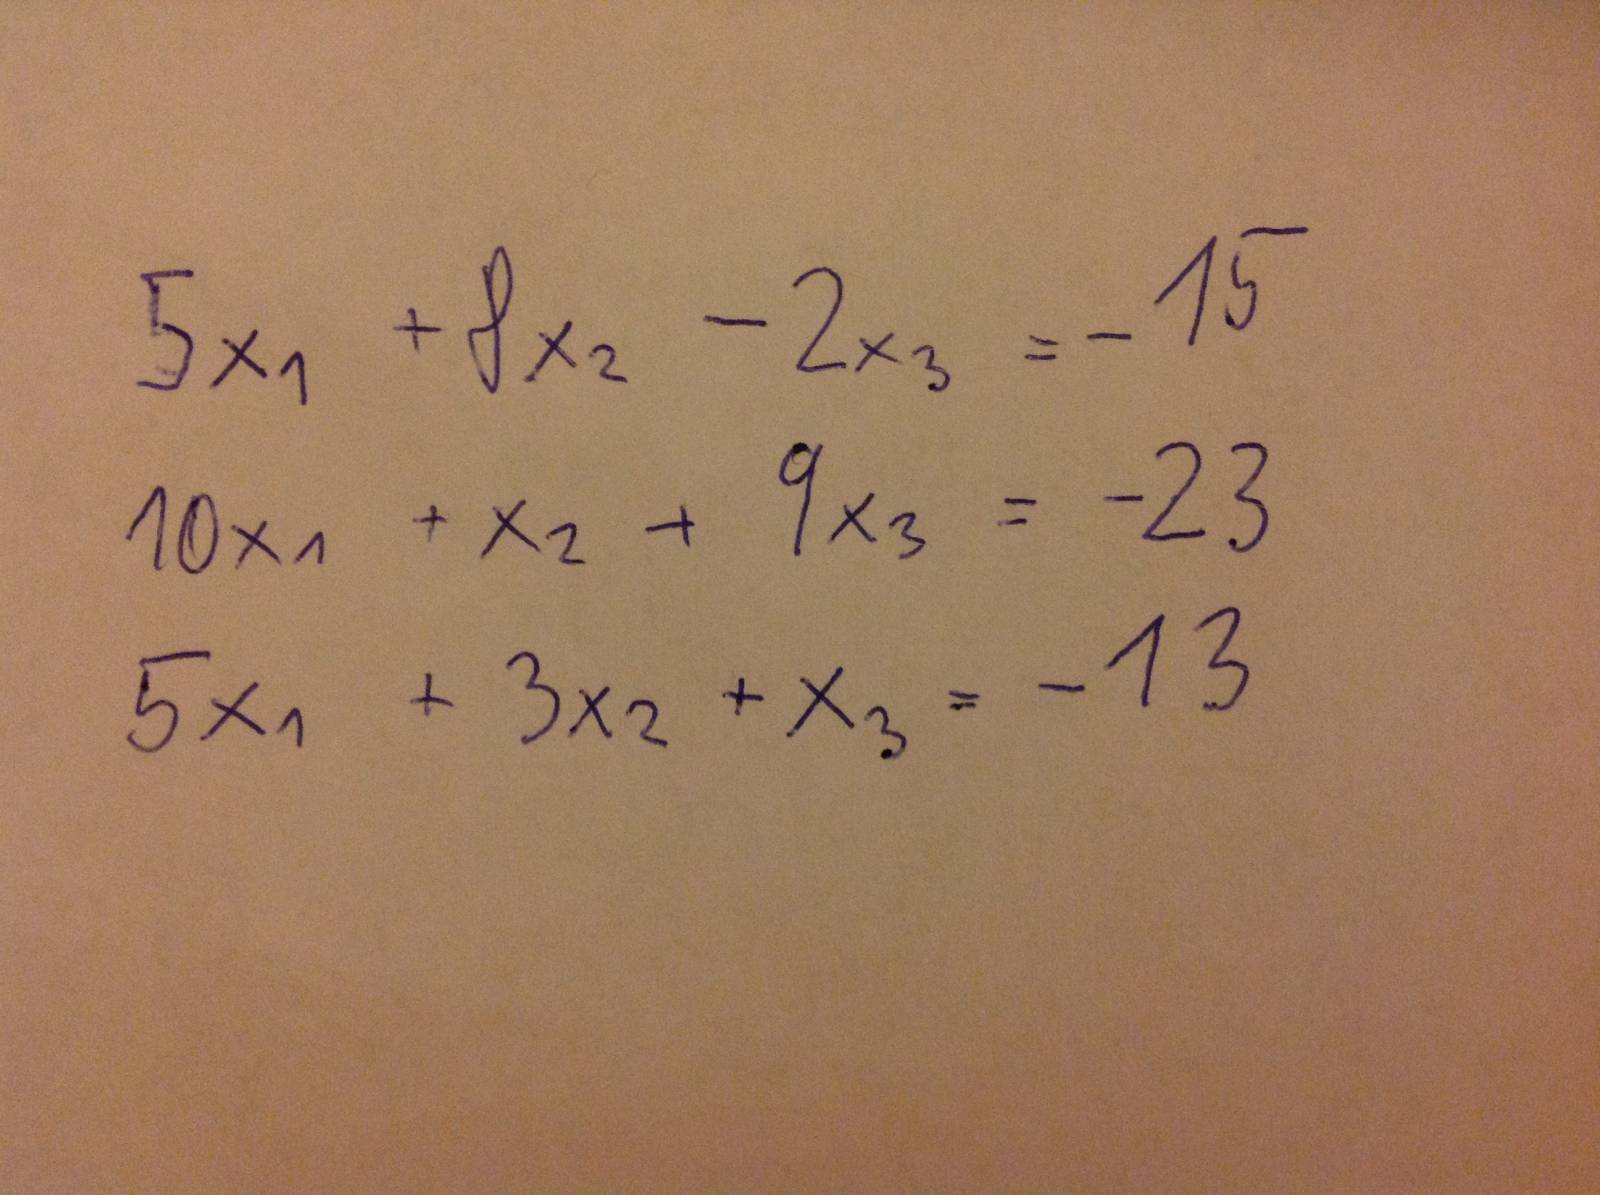 5x₁ + 8x₂ - 2x₃ = -15
10x₁ + x₂ + 9x₃ = -23
5x₁ + 3x₂ + x₃ = -13